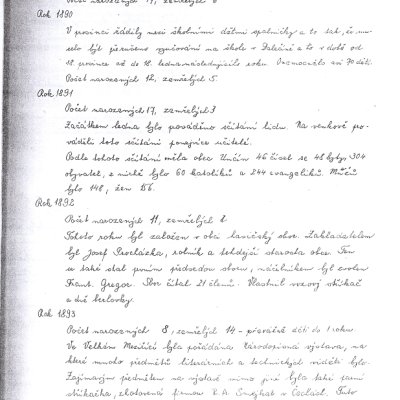 Počet narozených 14, zemřelých 6
Rok 1890
V prosinci řádily mezi školními dětmi spalničky a to tak, že mu-
selo být přerušeno vyučování na škole v a to v době od
18. prosince až do 18. ledna následujícího roku. Onemocnělo asi 70 dětí.
Počet narozených 12, zemřelých 5.
Rok 1891
Počet narozených 17, zemřelých 3
Začátkem ledna bylo prováděno sčítání lidu. Na venkově pro-
váděli toto sčítání ponejvíce učitelé.
Podle tohoto sčítání měla obec Unčín 46 čísel se 48 byty, 304
obyvatel, z nichž bylo 60 katolíků a 244 evangelíků. Mužů
bylo 148, žen 156.
Rok 1892
Počet narozených 11, zemřelých 2
Tohoto roku byl založen v obci hasičský sbor. Zakladatelem
byl Josef Procházka, rolník a tehdejší starosta obce. Ten
se také stal prvním předsedou sboru, náčelníkem byl zvolen
Frant. Gregor. Sbor čítal 21 členů. Vlastnil vozový stříkač
a dvě berlovky.
Rok 1893
Počet narozených 8, zemřelých 14 - převážně děti do 1 roku
Ve Velkém Meziříčí byla pořádána Národopisná výstava, na
které mnoho předmětů literárních a technických viděti bylo.
Zajímavým předmětem na výstavě mimo jiné byla také parní
stříkačka, zhotovená firmou R. A. Smejkal v Čechách. Tuto